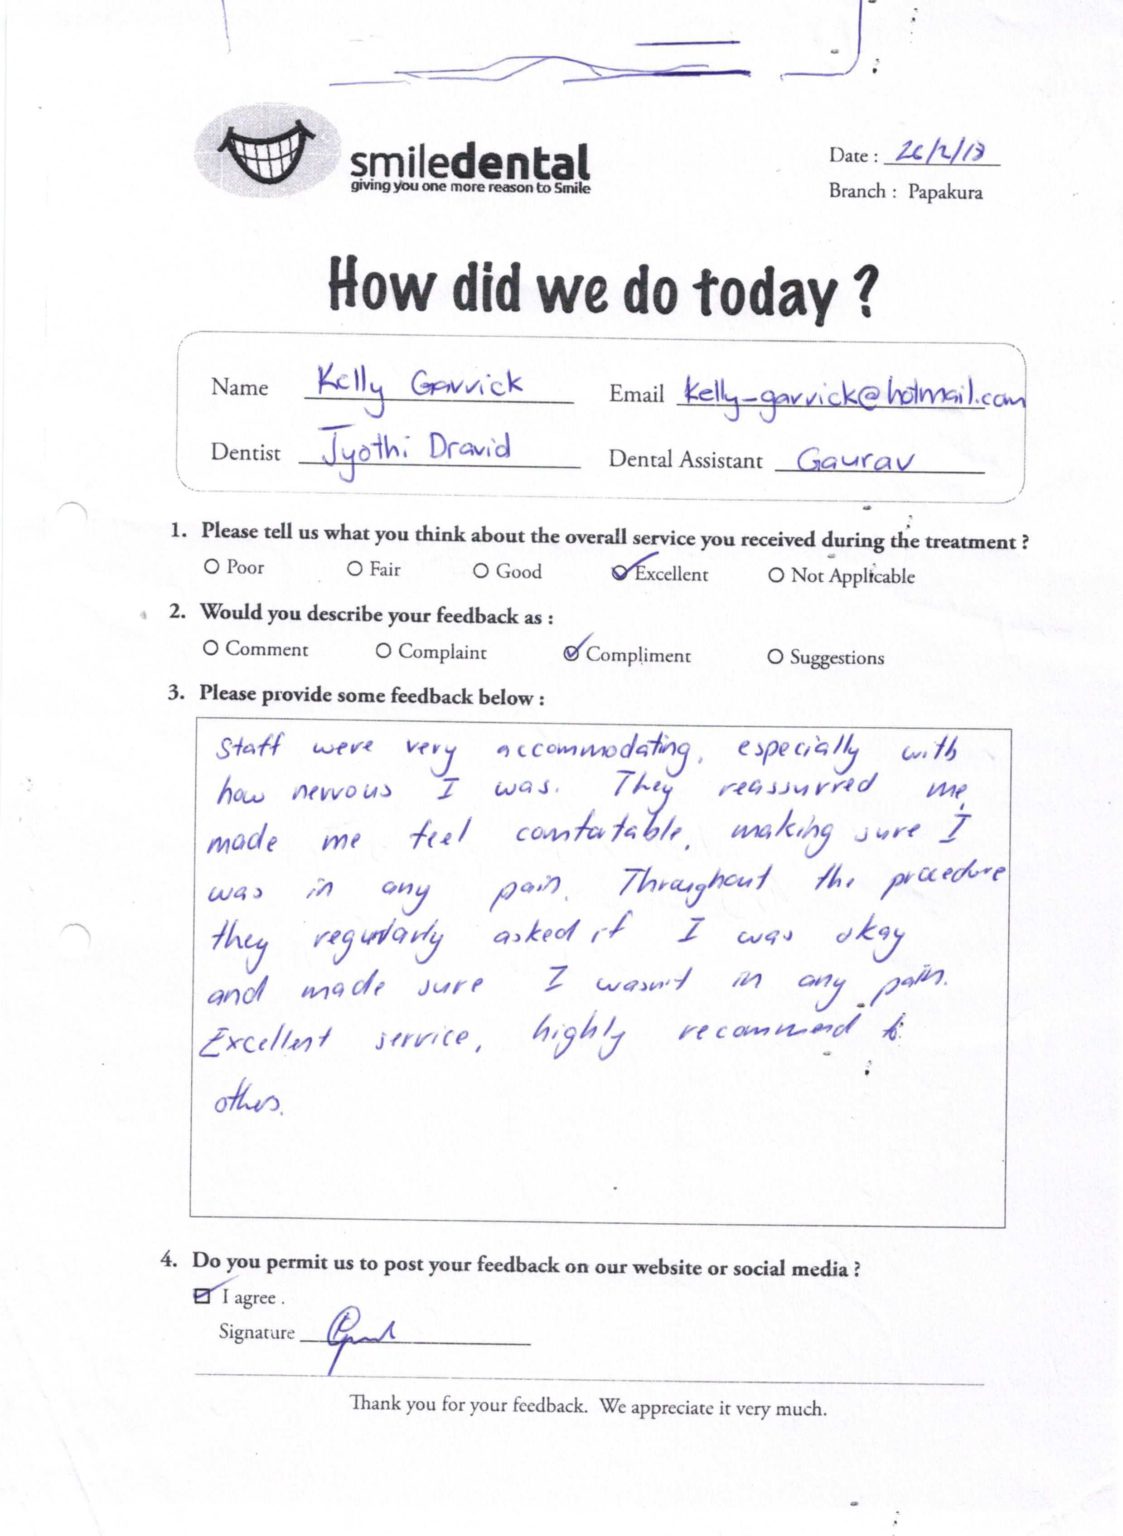 smiledental
giving you one more reason to Smile
Date : 26/2/18
Branch : Papakura
How did we do today ?
Name Kelly Garrick Email kelly-garrick@hotmail.com
Dentist Jyothi Dravid Dental Assistant Gaurav
1. Please tell us what you think about the overall service you received during the treatment ?
Poor Fair Good Excellent Not Applicable
2. Would you describe your feedback as :
Comment Complaint Compliment Suggestions
3. Please provide some feedback below :
Staff were very accommodating, especially with
how nervous I was. They reassurred me,
made me feel comfortable, making sure I
was in any pain. Throughout the procedure
they regularly asked if I was okay
and made sure I wasn't in any pain.
Excellent service, highly recommend to
others.
4. Do you permit us to post your feedback on our website or social media ?
I agree .
Signature
Thank you for your feedback. We appreciate it very much.